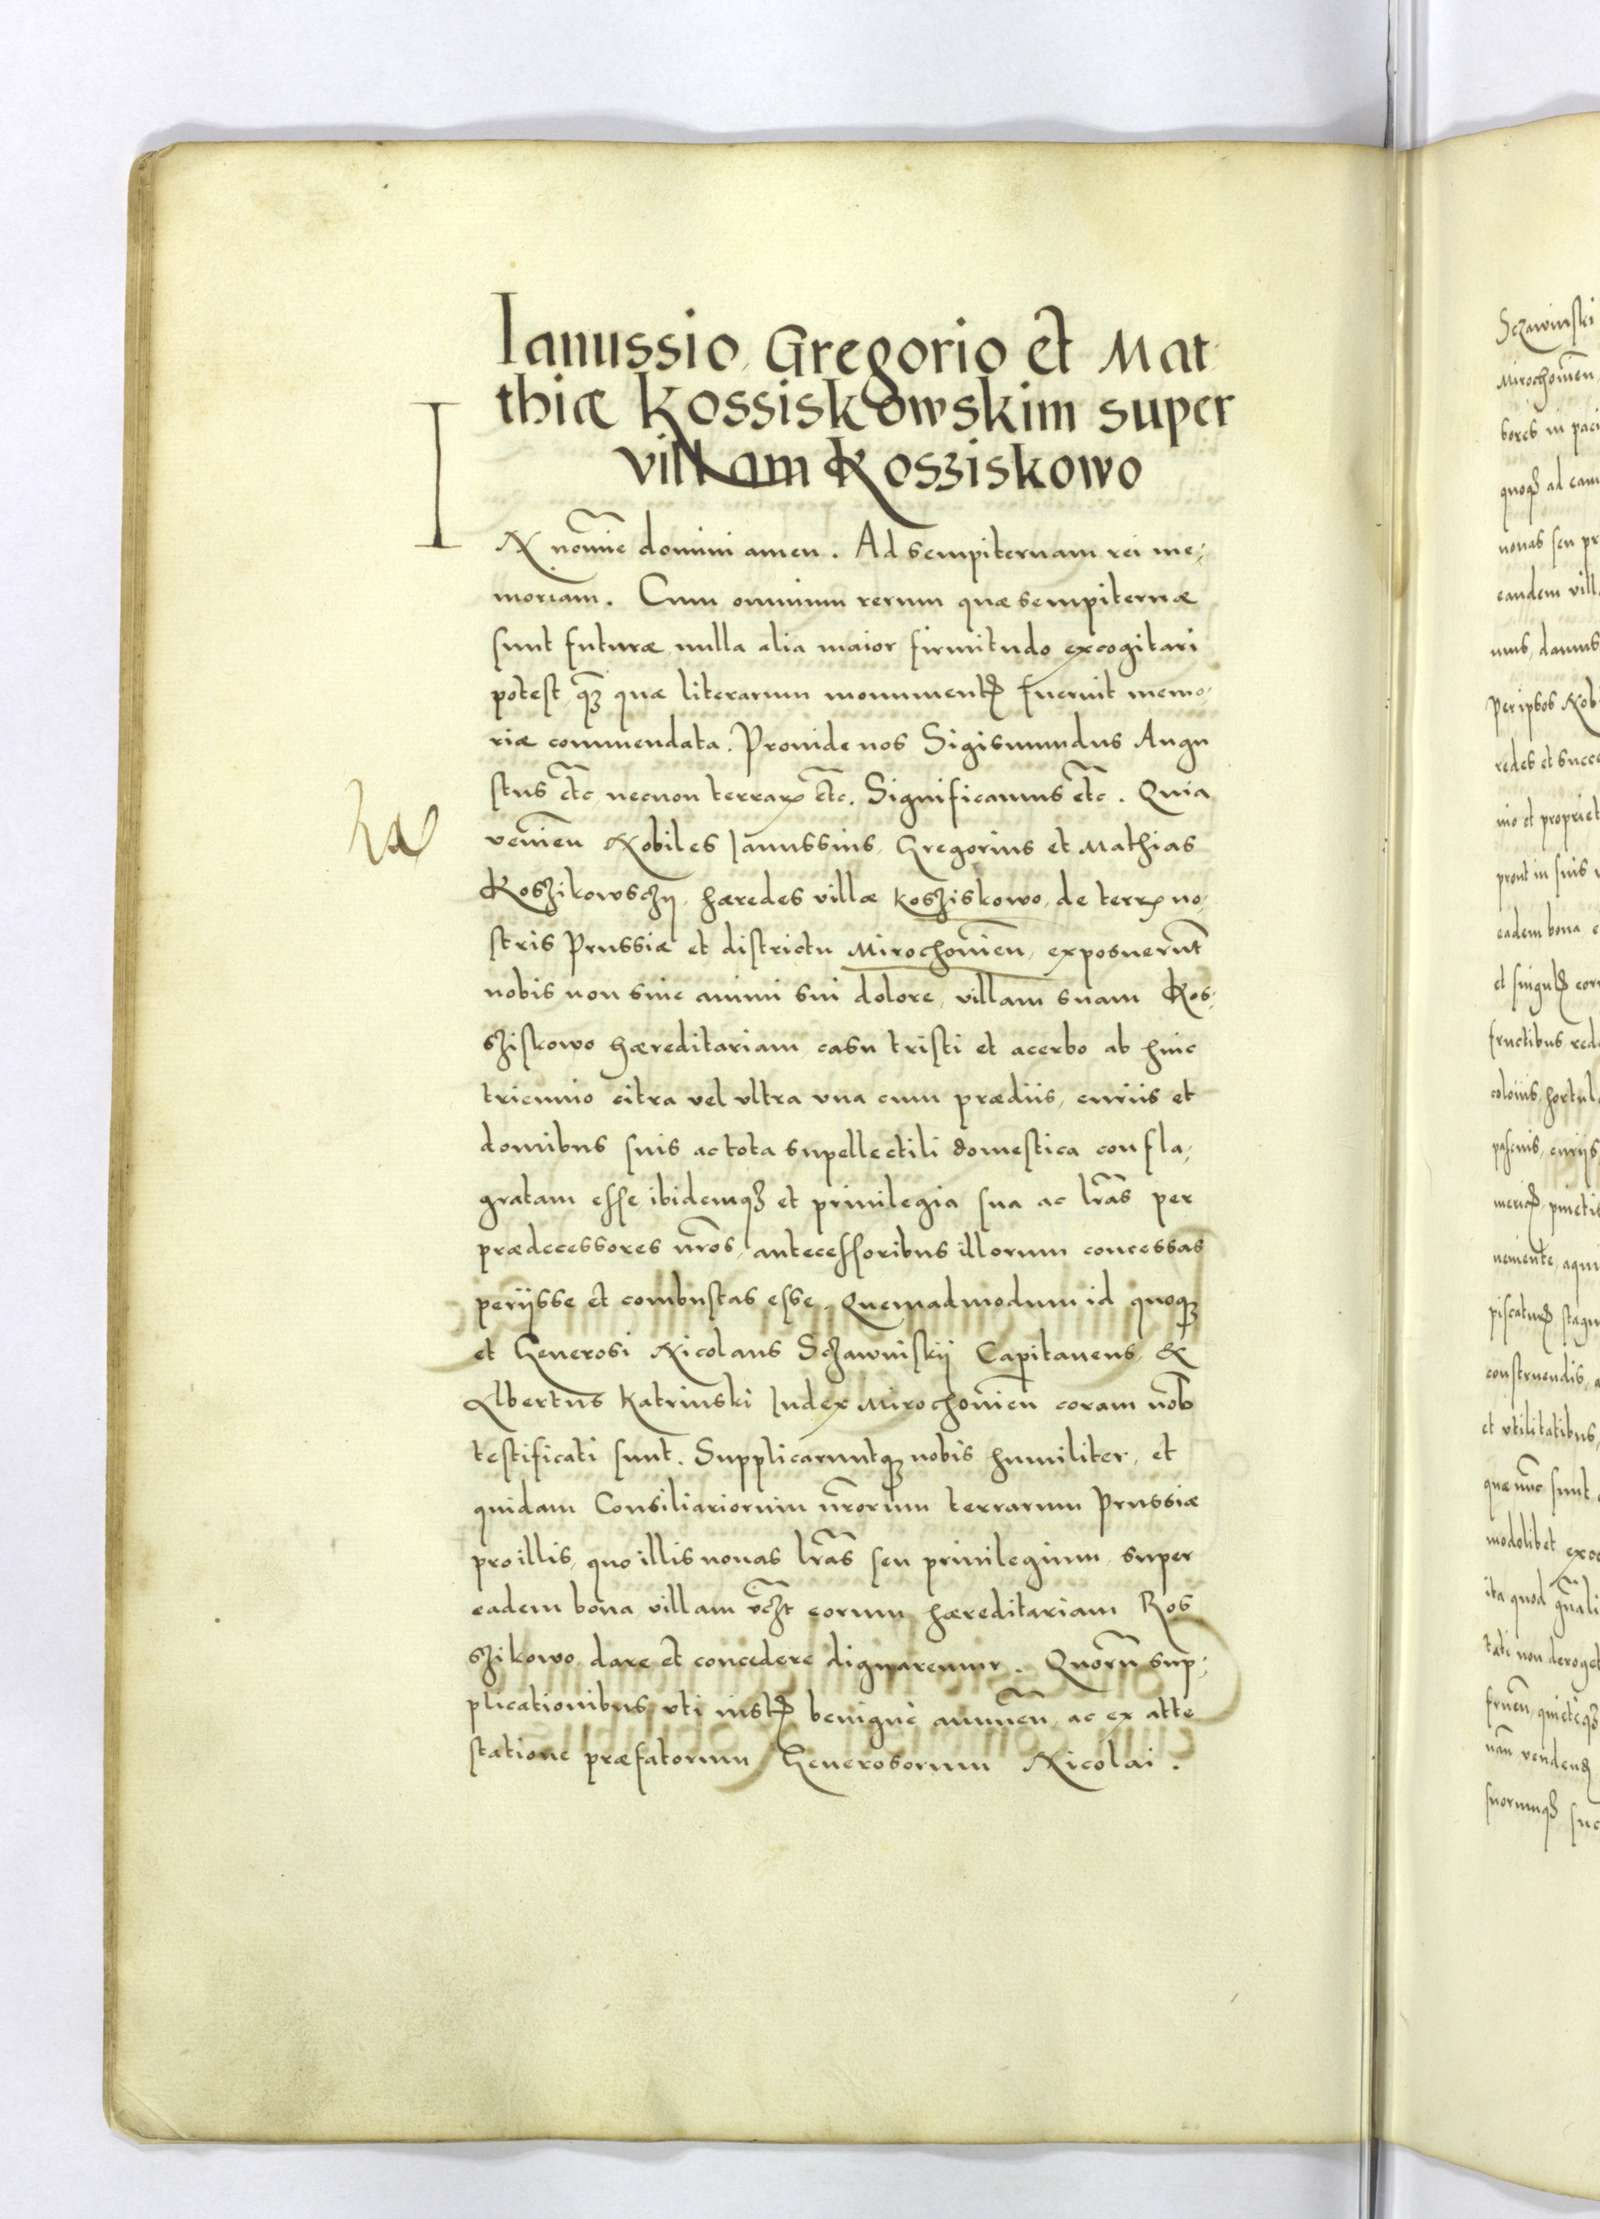 Ianussio, Gregorio et Mat
thiæ Kossiskowskim super
villam Kosziskowo
IN nom̃ine domini amen. Ad sempiternam rei me,
moriam. Cum omnium rerum quæ sempiternæ
sunt futuræ nulla alia maior firmitudo excogitari
potest, q̃ꝫ quæ literarum monumentꝭ fuerint memo,
riæ commendata. Prouide nos Sigismundus Augu
stus et̃c necnon terrarꝝ et̃c. Significamus et̃c. Quia
venieñ Nobiles Ianussius, Gregorius et Mathias
Koszikowsczij, hæredes villæ Kosziskowo, de terrꝭ no,
stris Prussiæ et districtu Mirochouieñ, exposuerũt
nobis non sine animi sui dolore, villam suam Kos,
sziskowo hæreditariam casu tristi et acerbo ab hinc
triennio citra vel vltra vna cum prædiis, curiis et
domibus suis ac tota supellectili domestica confla,
gratam esse ibidemqꝫ et priuilegia sua ac lr̃as per
prædecessores nr̃os, antecessoribus illorum concessas
periisse et combustas esse. Quemadmodum id quoqꝫ
et Generosi Nicolaus Sczawinskij Capitaneus, &
Albertus Katrinski Iudex Mirochouieñ coram nob̃
testificati sunt. Supplicaruntqꝫ nobis humiliter, et
quidam Consiliariorum nr̃orum terrarum Prussiæ
pro illis, quo illis nouas lr̃as seu priuilegium, super
eadem bona villam vcz̃t eorum hæreditariam Kos
szikowo dare et concedere dignaremur. Quorũ sup,
plicationibus vti iustꝭ benigne annueñ, ac ex atte
statione præfatorum Generosorum Nicolai.
Sczawinski
Mirochouieñ
bores in paci
quoqꝫ ad eam
nouas seu pr
eandem vill
mus, damus
per ipsos Nob
redes et succe
nio et propriet
prout in suis
eadem bona
et singulꝭ
fructibus red
colonis, hortul
pascuis, curiis
mericꝭ, pinetis
piscaturꝭ, stagn
construendis, a
et vtilitatibus,
quæ nũc sunt
modolibet exc
ita quod gñali
tati non deroget
frueñ, quieteqꝫ
suorumqꝫ suc